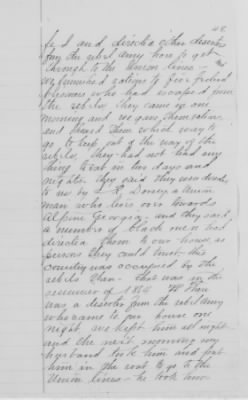 48
fed and directed other deserters
from the rebel army how to get
through to the Union lines - and
we furnished rations to five federal
prisoners who had escaped from
the rebels They came in one
morning and we gave them rations
and showed them which way to
go to keep out of the way of the
rebels, they had not had any
thing to eat in two days and
nights they said they were directed
to us by L. R. Dorsey a Union
man who lives over towards
Alpine Georgia - and they said
a number of black men had
directed them to our house as
persons they could trust, this
country was occupied by the
rebels then - that was in the
summer of 1864 There
was a deserter from the rebel army
who came to our house one
night we kept him all night
and the next morning my
husband took him and put
him in the road to go to the
Union lines - he took him